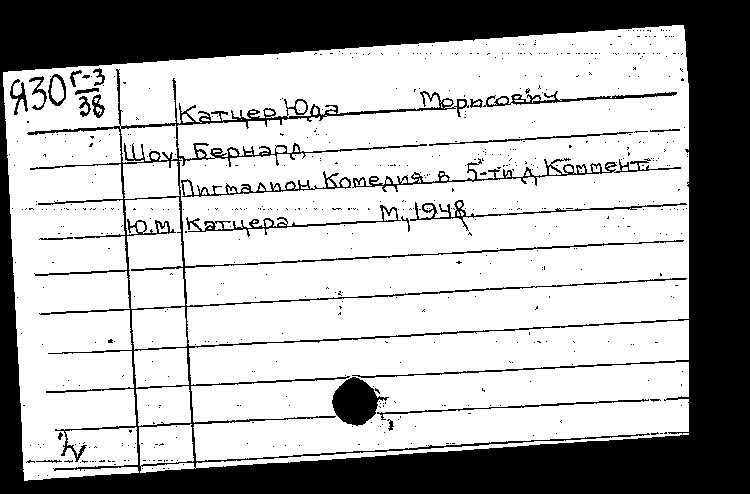 Я30 Г-3/38
Катцер, Юда Морисович
Шоу, Бернард
Пигмалион. Комедия в 5-ти д. Коммент.
Ю.М. Катцера. М., 1948.